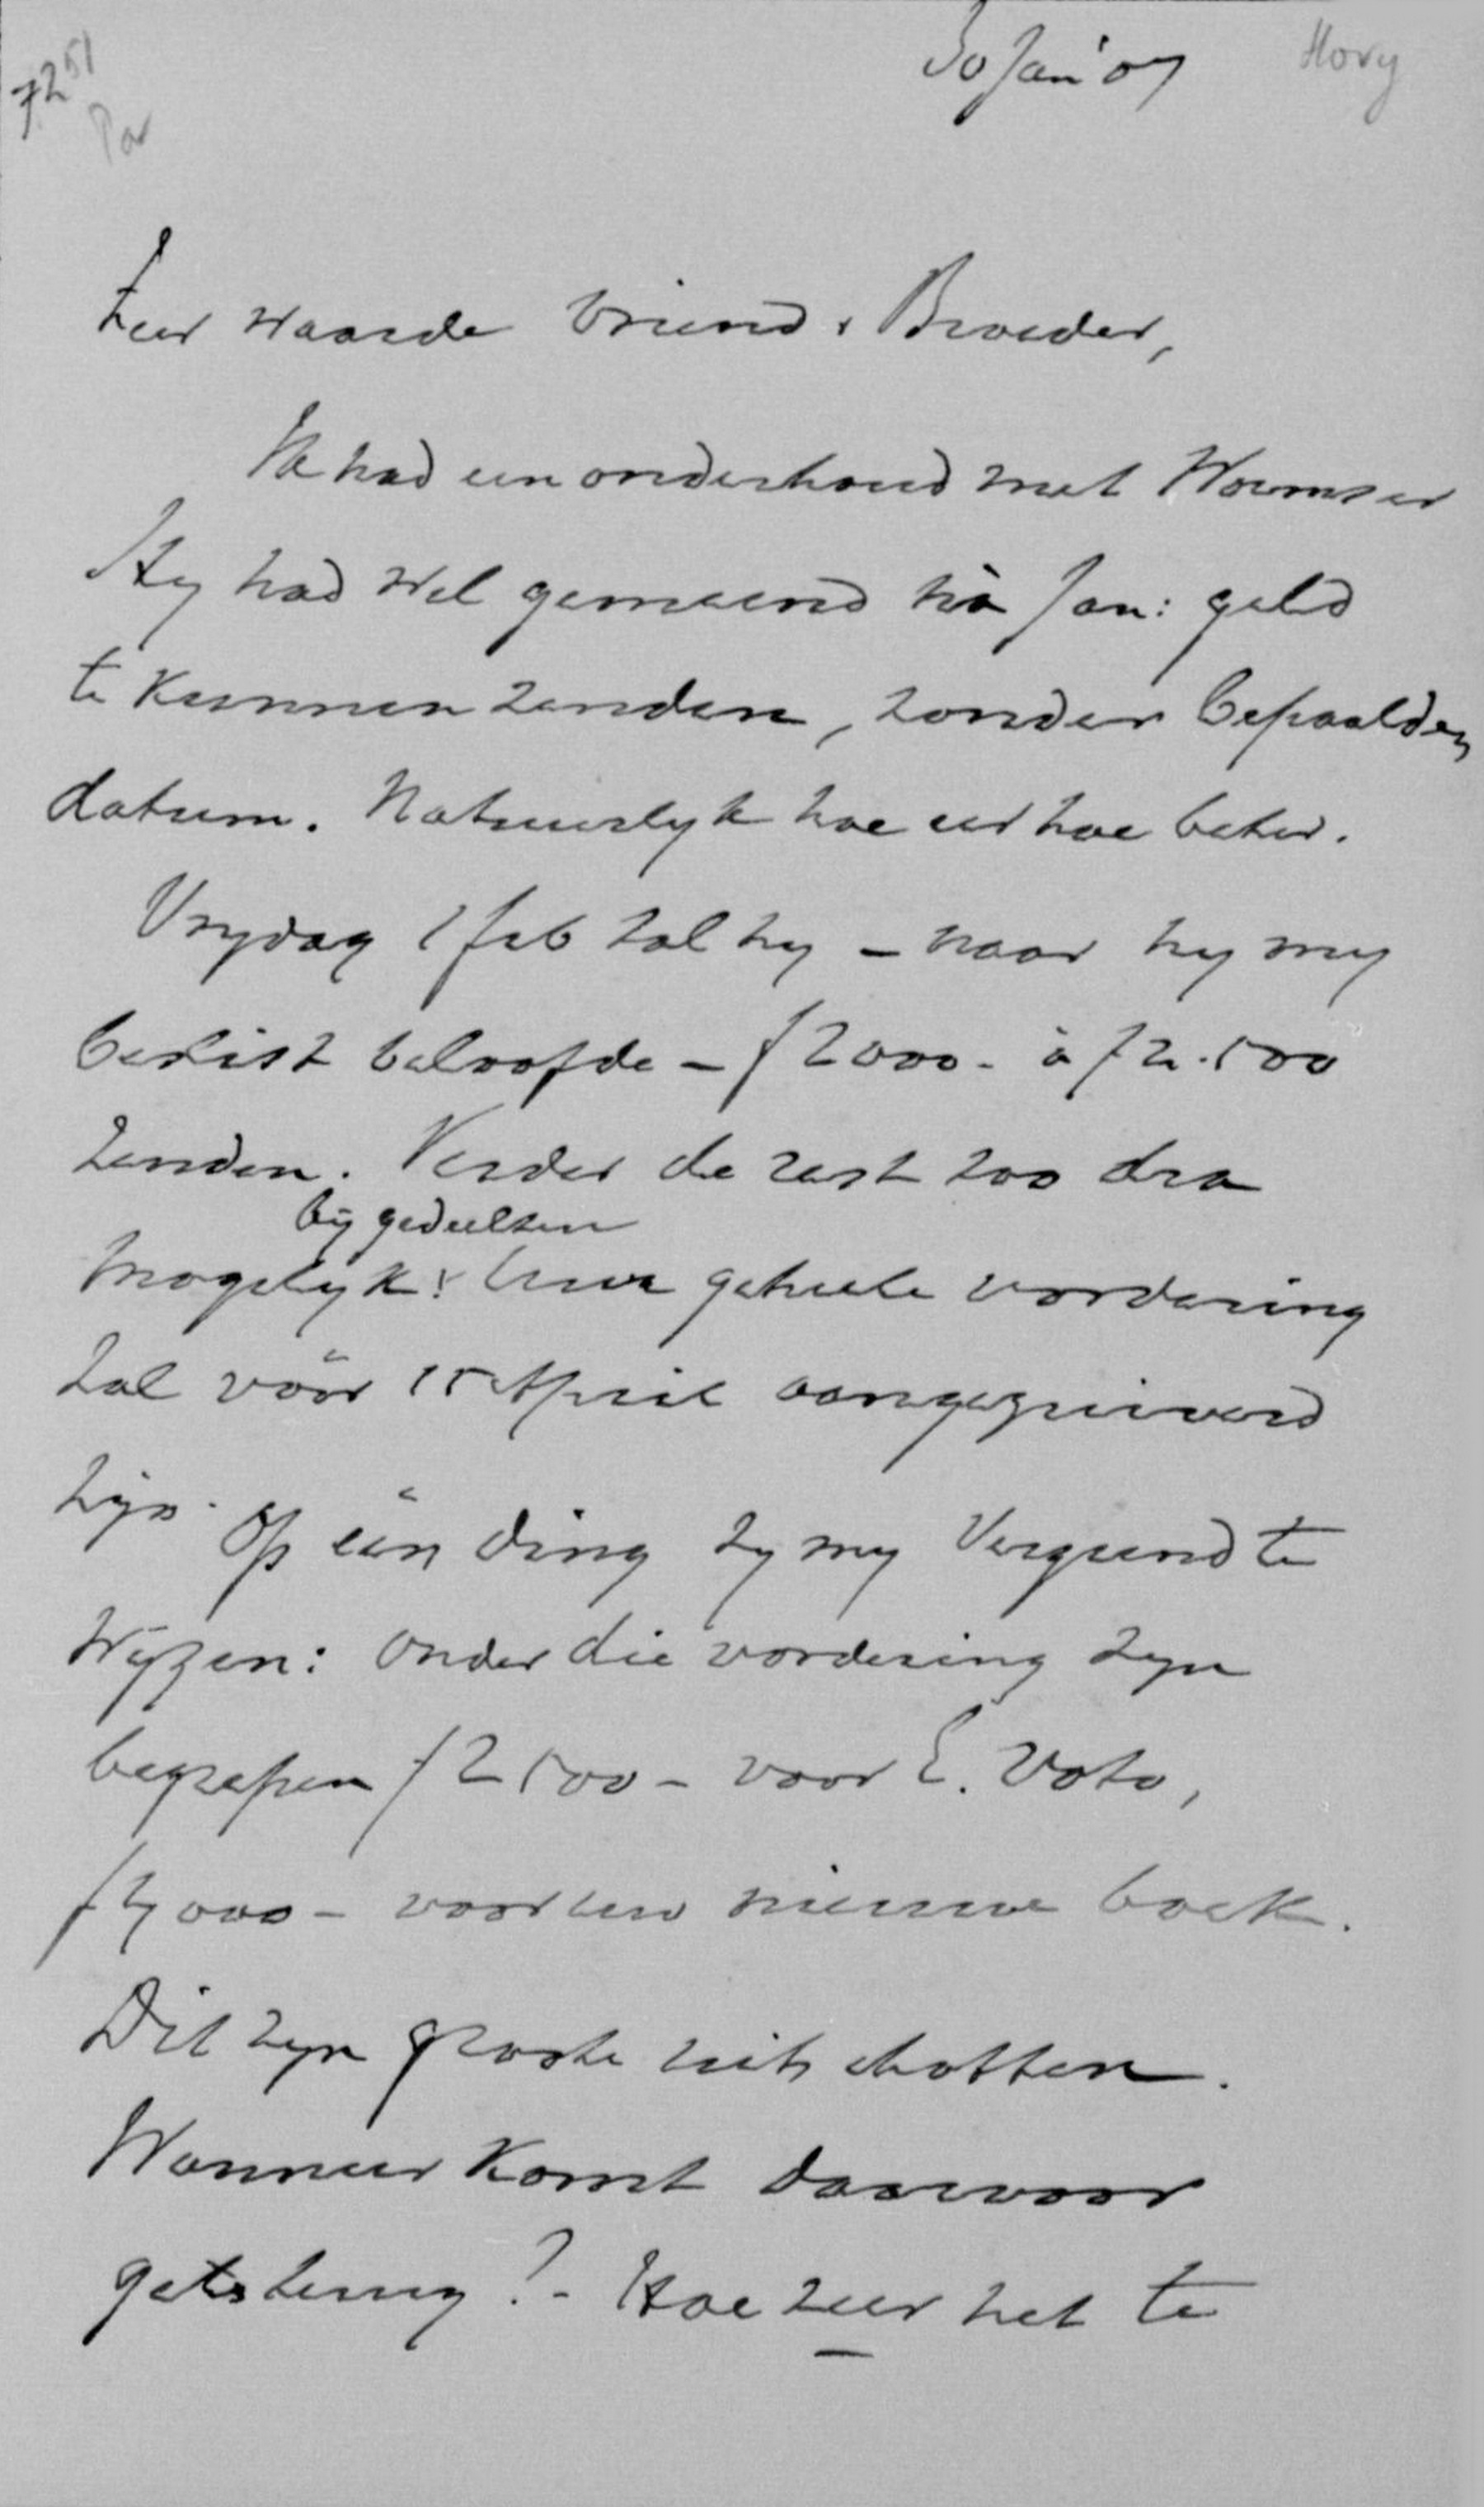 30 Jan '07
Hovy
7251
Par
Zeer waarde Vriend & Broeder,
Ik had een onderhoud met Wormser
Hy had wel gemeend nà Jan: geld
te kunnen zenden, zonder bepaalden
datum. Natuurlyk hoe eer hoe beter.
Vrydag 1 feb zal hy – naar hy my
beslist beloofde – f 2000.- à f 2.500
zenden. Verder de rest zoo dra
by gedeelten
mogelyk: Uwe geheele vordering
zal vóór 15 April aangezuiverd
zyn. Op één ding zy my vergund te
wyzen: onder die vordering zyn
begrepen f 2500 – voor E. Voto,
000 – voor uw nieuwe boek.
Dit zyn groote uitschotten.
Wanneer komt daarvoor
iets terug? - Hoe zeer het te